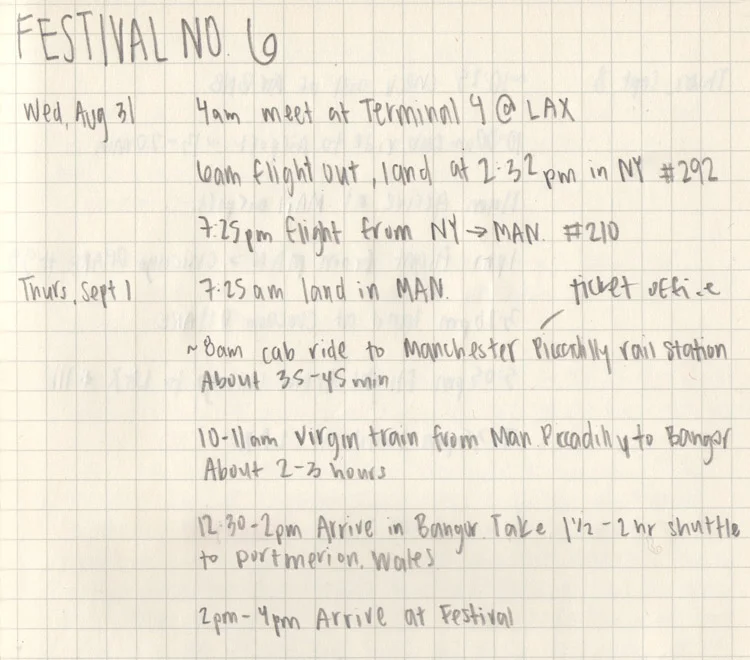 FESTIVAL NO. 6
Wed, Aug 31 4am meet at Terminal 4 @ LAX
6am flight out, land at 2:32 pm in NY #292
7:25pm flight from NY → MAN. #210
Thurs, Sept 1 7:25 am land in MAN. ticket office
~8am cab ride to Manchester Piccadilly rail station
About 35-45 min
10-11am Virgin train from Man. Piccadilly to Bangor
About 2-3 hours
12:30-2pm Arrive in Bangor. Take 1½-2 hr shuttle
to portmerion, Wales
2pm-4pm Arrive at Festival